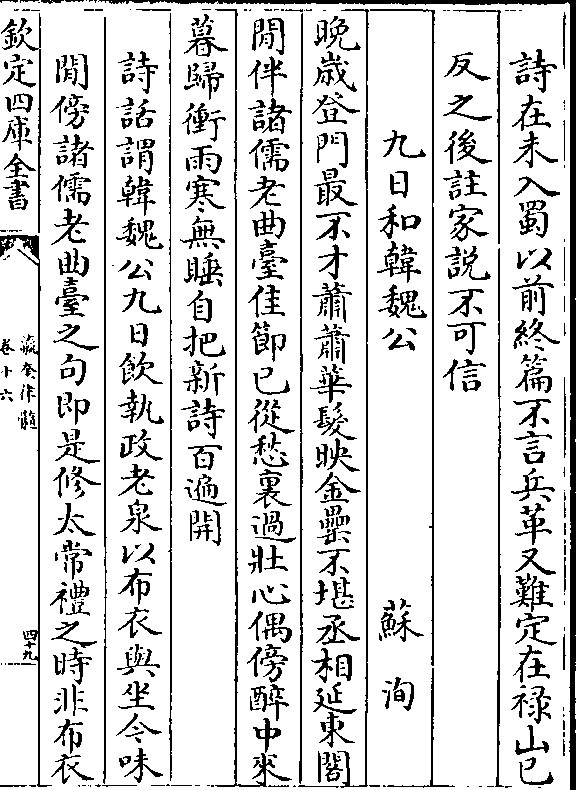 詩在未入蜀以前終篇不言兵革又難定在禄山已
反之後註家説不可信
九日和韓魏公 蘇洵
晩歳登門最不才蕭蕭華髮映金罍不堪丞相延東閣
閒伴諸儒老曲臺佳節已從愁裏過壯心偶傍醉中來
暮歸衝雨寒無睡自把新詩百遍開
詩話謂韓魏公九日飲執政老泉以布衣與坐今味
閒傍諸儒老曲臺之句即是修太常禮之時非布衣
欽定四庫全書
瀛奎律髓
卷十六
四十九